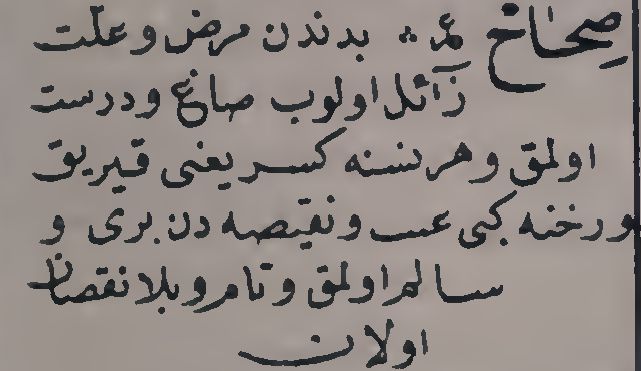 صِحَاحْ عر بدندن مرض و علّت
زآئل اولوب صاغ و درست
اولمق و هر نسنه كسر يعنى قيريق
و رخنه كبى عيب و نقيصه دن برى و
سالم اولمق و تام و بلا نقصان
اولان